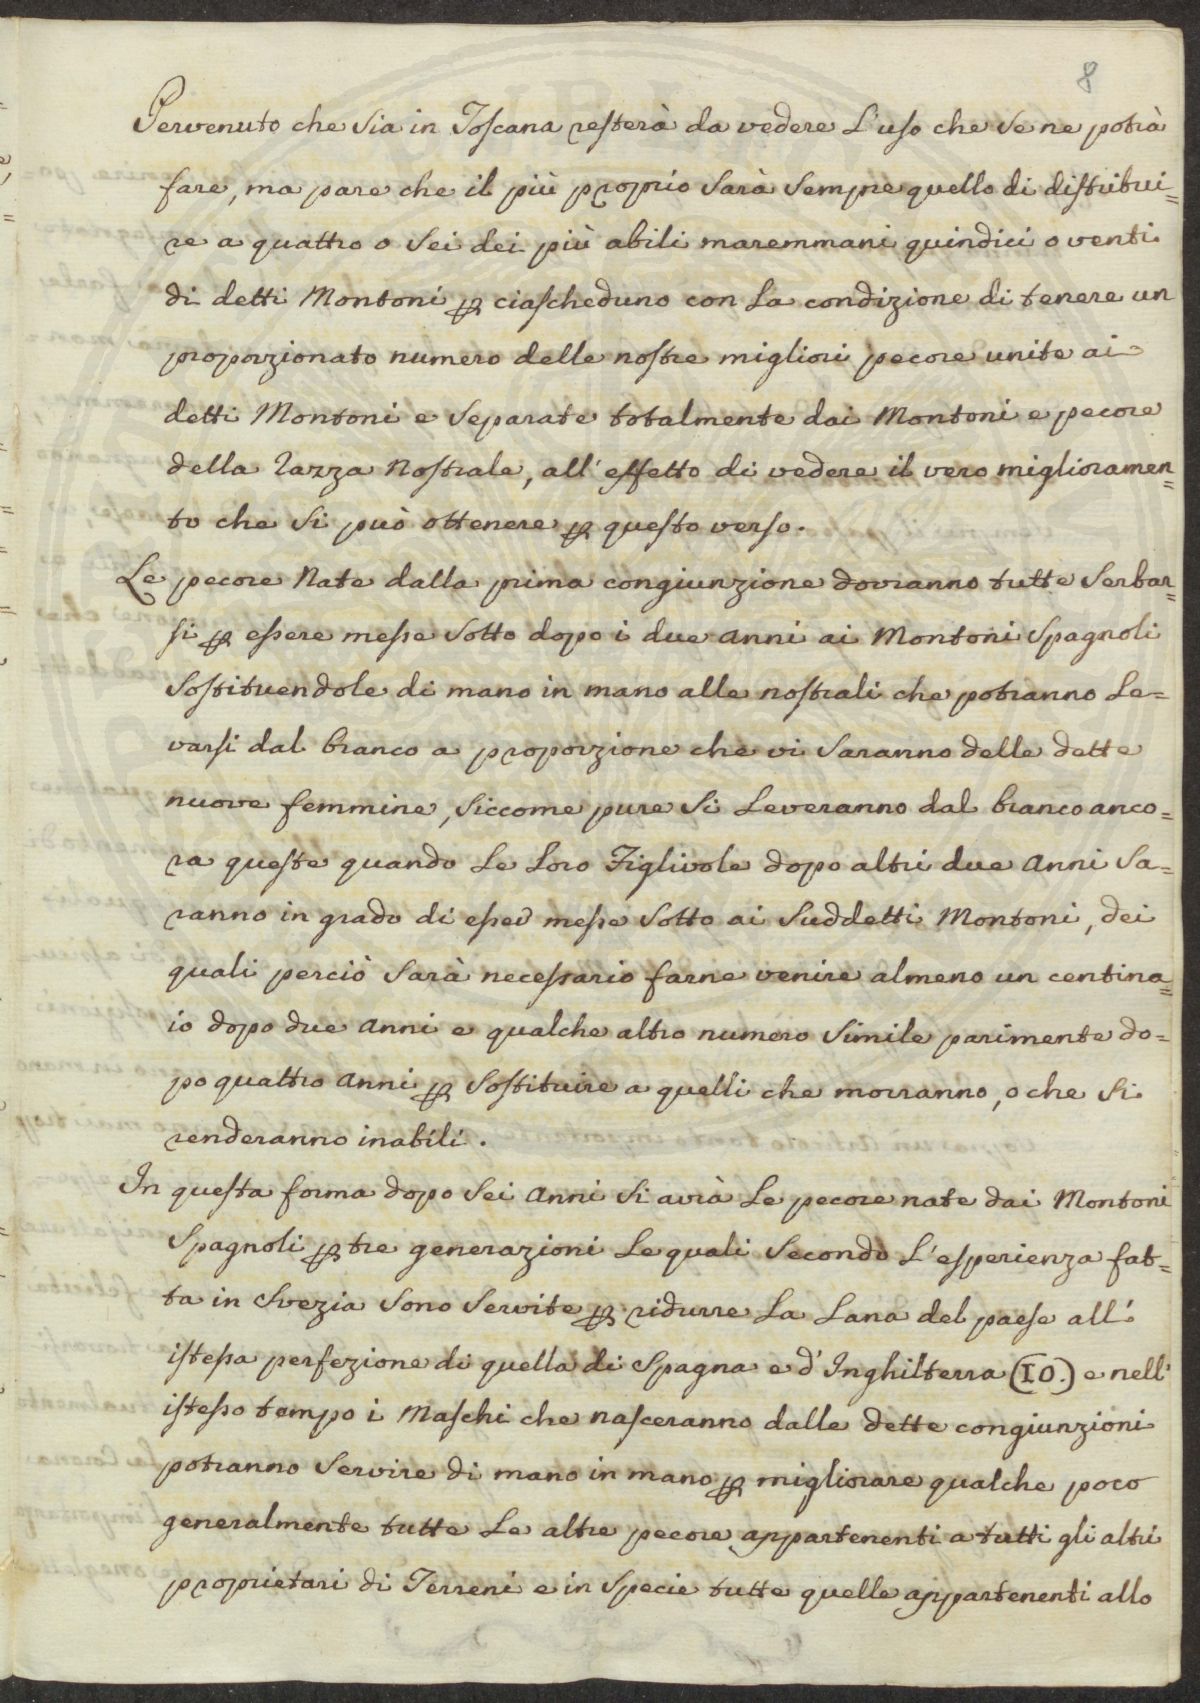 8
Pervenuto che Sia in Toscana resterà da vedere L'uso che Se ne potrà
fare, ma pare che il più proprio Sarà Sempre quello di distribui=
re a quattro o Sei dei più abili maremmani quindici o venti
di detti Montoni p ciascheduno con La condizione di tenere un
proporzionato numero delle nostre migliori pecore unite ai
detti Montoni e Separate totalmente dai Montoni e pecore
della razza Nostrale, all'effetto di vedere il vero miglioramen=
to che Si può ottenere p questo verso.
Le pecore Nate dalla prima congiunzione dovranno tutte Serbar=
si p essere messe Sotto dopo i due anni ai Montoni Spagnoli
Sostituendole di mano in mano alle nostrali che potranno Le=
varsi dal branco a proporzione che vi Saranno delle dette
nuove femmine, Siccome pure Si Leveranno dal branco anco=
ra queste quando Le Loro Figlivole dopo altri due Anni Sa=
ranno in grado di esser messe Sotto ai Suddetti Montoni, dei
quali perciò Sarà necessario farne venire almeno un centina=
io dopo due Anni e qualche altro numero Simile parimente do=
po quattro Anni p Sostituire a quelli che morranno, o che Si
renderanno inabili.
In questa forma dopo Sei Anni Si avrà Le pecore nate dai Montoni
Spagnoli p tre generazioni Le quali Secondo L'esperienza fat=
ta in Svezia Sono Servite p ridurre La Lana del paese all'
istessa perfezione di quella di Spagna e d'Inghilterra (10.) e nell'
istesso tempo i Maschi che nasceranno dalle dette congiunzioni
potranno Servire di mano in mano p migliorare qualche poco
generalmente tutte Le altre pecore appartenenti a tutti gli altri
proprietari di Terreni e in Specie tutte quelle appartenenti allo